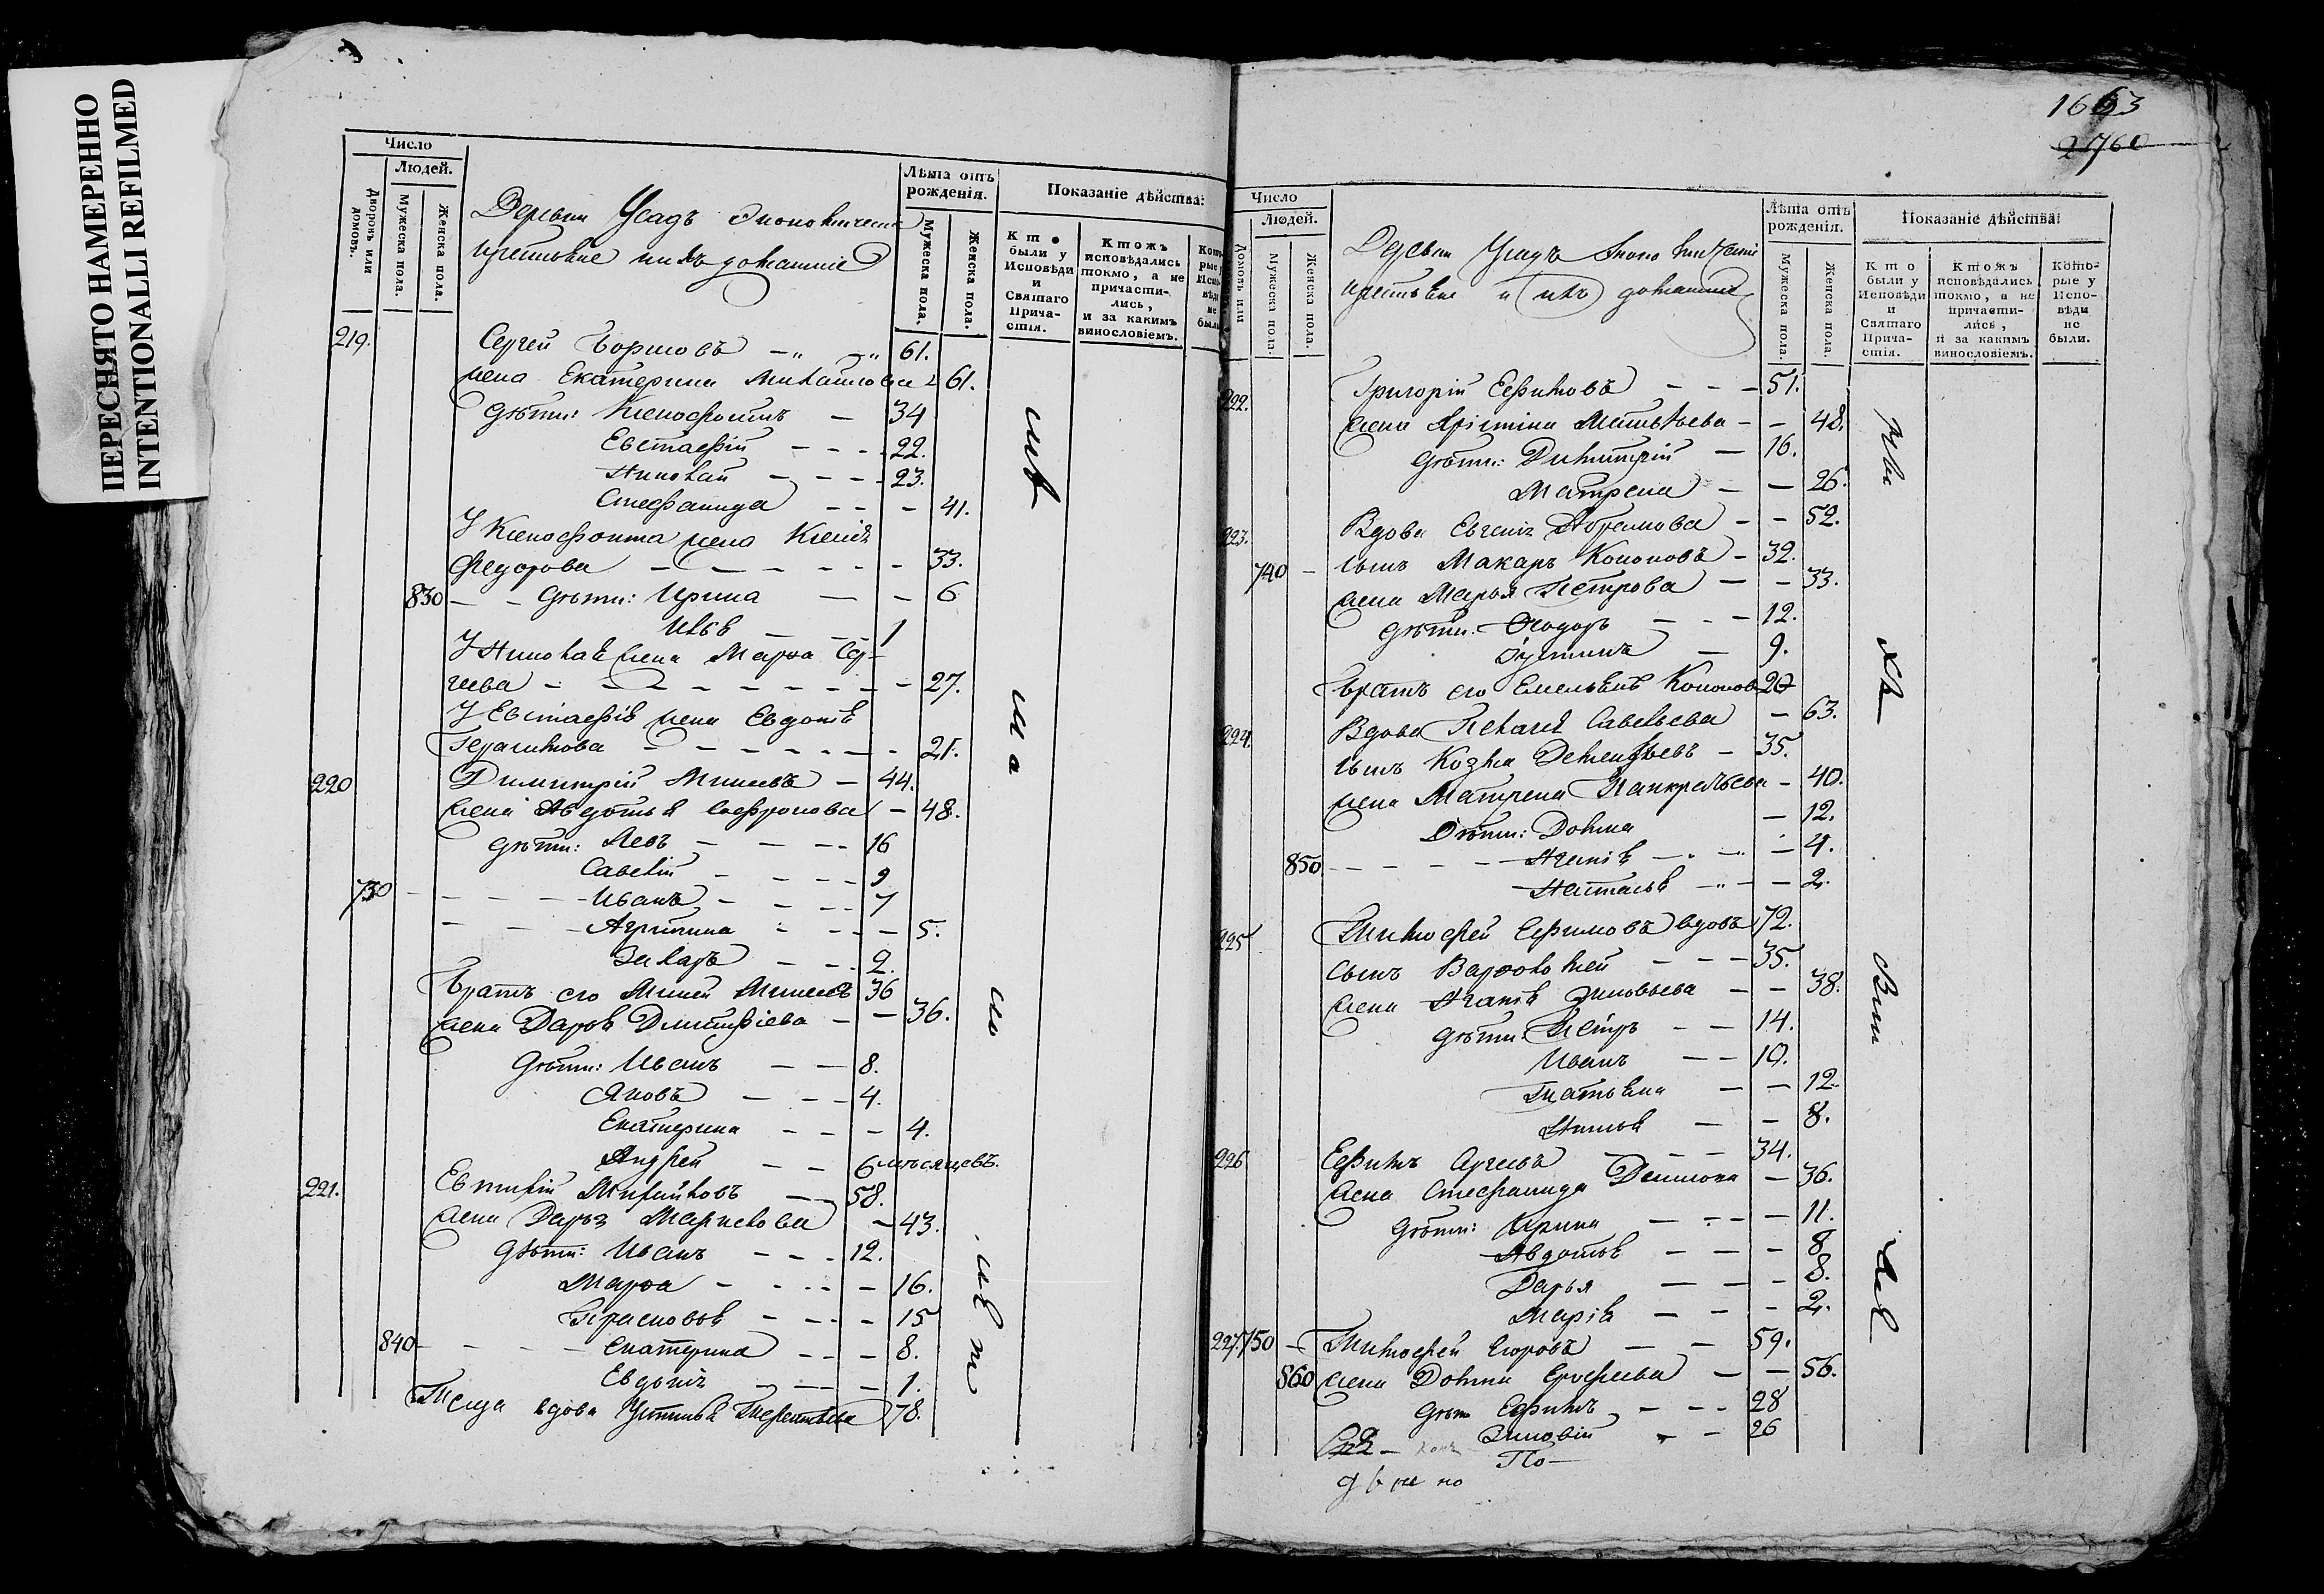 ПЕРЕСНЯТО НАМЕРЕННО
INTENTIONALLI REFILMED
Число
Людей.
Дворовъ или домовъ.
Мужеска пола.
Женска пола.
Деревни Усадъ
Лѣта отъ рожденія.
Мужеска пола.
Женска пола.
Показаніе дѣйства:
Кто были у Исповѣди и Святаго Причастія.
Ктожъ исповѣдались токмо, а не причастились, и за какимъ винословіемъ.
219. Сергей Борисовъ 61.
жена Екатерина Михайлова 61.
дѣти: Ксенофонтъ 34
Евстафій 22.
Николай 23.
Стефанида 41.
У Ксенофонта жена Ксенія
Федорова 33.
830 дѣти: Ирина 6
1
У Николая жена Марѳа Сер-
геева 27.
У Евстафія жена Евдокія
Герасимова 21.
220 Димитрій Минеевъ 44.
жена Авдотья Софронова 48.
дѣти: Левъ 16
Савелій 9
730 Иванъ 7
Агрипина 5.
Захаръ 2.
Братъ его Миней Минеевъ 36
жена Дарья Дмитріева 36.
дѣти: Иванъ 8.
Яковъ 4.
Екатерина 4.
Андрей 6 мѣсяцевъ.
221. 58.
жена Дарья 43.
дѣти: Иванъ 12.
Марѳа 16.
Прасковья 15
840 Екатерина 8.
Евдокія 1.
вдова 78.
1663
2760
Число
Людей.
Домовъ или
Мужеска пола.
Женска пола.
Деревни Усадъ
крестьяне и ихъ домашніе
Лѣта отъ рожденія.
Мужеска пола.
Женска пола.
Показаніе дѣйства:
Кто были у Исповѣди и Святаго Причастія.
Ктожъ исповѣдались токмо, а не причастились, и за какимъ винословіемъ.
Которые у Исповѣди не были.
222. Григорій Ефимовъ 51.
жена Матвѣева 48.
дѣти: Димитрій 16.
Матрена 26.
223. Вдова Евгенія Абрамова 52.
740 сынъ Макаръ Кононовъ 32.
жена Марья Петрова 33.
дѣти: Ѳеодоръ 12.
Іустинъ 9.
братъ его Емельянъ Кононовъ 20
224. Вдова Пелагея Савельева 63.
сынъ Козма Дементьевъ 35.
жена Матрена Панкратьева 40.
Дѣти: Домна 12.
850 4.
Наталья 2.
225 Тимофей Ефимовъ вдовъ 72.
сынъ Варѳоломей 35.
жена Агафья Зиновьева 38.
дѣти: Петръ 14.
Иванъ 10.
Татьяна 12.
8.
226 Ефимъ Сергеевъ 34.
жена Стефанида 36.
дѣти: Ирина 11.
Авдотья 8
Дарья 8.
Марія 2.
227. 750 Тимофей Егоровъ 59.
860 жена Домна Ерофеева 56.
дѣти Ефимъ 28
Зиновій 26
По-